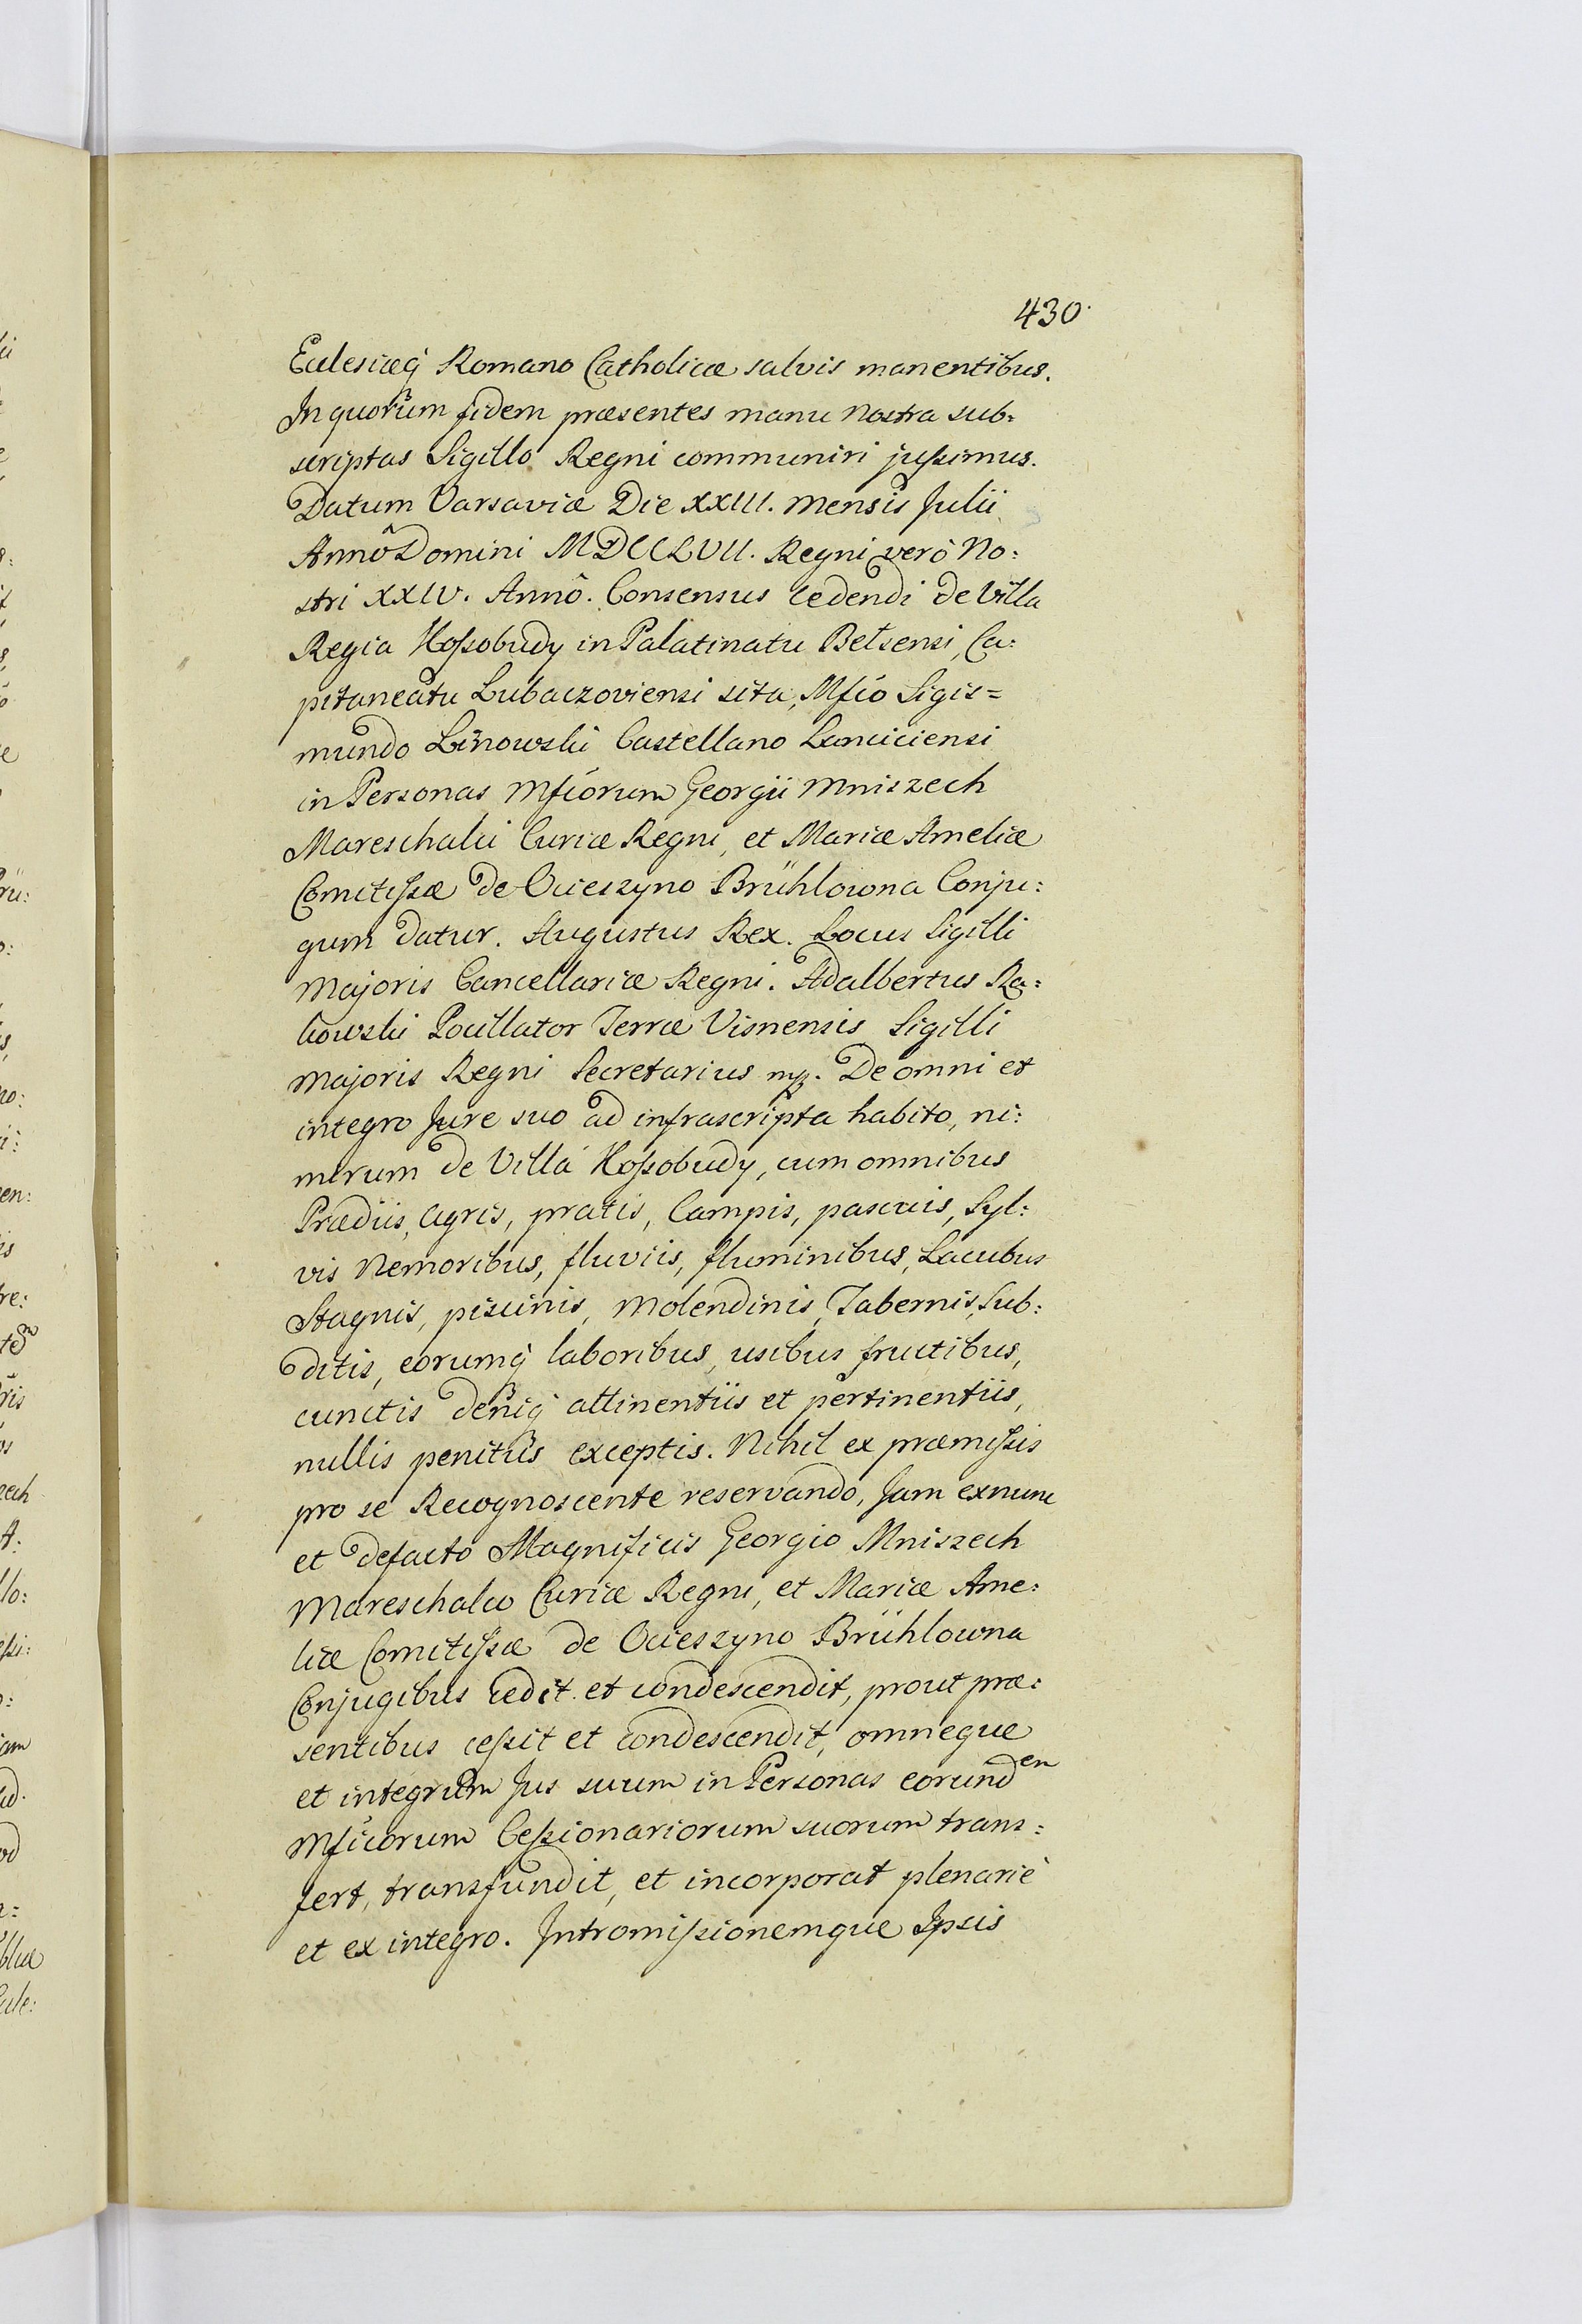 430.
Eclesiæq́ Romano Catholicæ salvis manentibus.
In quorum fidem præsentes manu Nostra sub:
scriptas Sigillo Regni communiri jussimus.
Datum Varsaviæ Die XXIII. Mensis Julii
Annô Domini MDCCLVII. Regni verò No:
stri XXIV. Annô. Consensus cedendi de Villa
Regia Hossobudy in Palatinatu Belsensi, Ca:
pitaneatu Lubaczoviensi sita, Mfico Sigis=
mundo Linowski Castellano Lanciciensi
in Personas Mficorum Georgii Mniszech
Mareschalci Curiæ Regni, et Mariæ Ameliæ
Comitissæ de Ocieszyno Brühlowna Conju:
gum datur. Augustus Rex. Locus Sigilli
Majoris Cancellariæ Regni. Adalbertus Ra:
kowski Pocillator Terræ Visnensis Sigilli
Majoris Regni Secretarius mp. De omni et
integro Jure suo ad infrascripta habito, ni:
mirum de Villa Hossobudy, cum omnibus
Prædiis, Agris, pratis, Campis, pascuis, Syl:
vis Nemoribus, fluviis, fluminibus, Lacubus
Stagnis, piscinis, Molendinis, Tabernis, Sub:
ditis, eorumq́ laboribus, usibus fructibus,
cunctis deniq́ attinentiis et pertinentiis,
nullis penitùs exceptis. Nihil ex præmissis
pro se Recognoscente reservando, Jam exnunc
et defacto Magnificis Georgio Mniszech
Mareschalco Curiæ Regni, et Mariæ Ame:
liæ Comitissæ de Ocieszyno Brühlowna
Conjugibus cedit et condescendit, prout præ:
sentibus cessit et condescendit, omneque
et integrum Jus suum in Personas eorundem
Mficorum Cessionariorum suorum trans:
fert, transfundit, et incorporat plenariè
et ex integro. Intromissionemque Ipsis